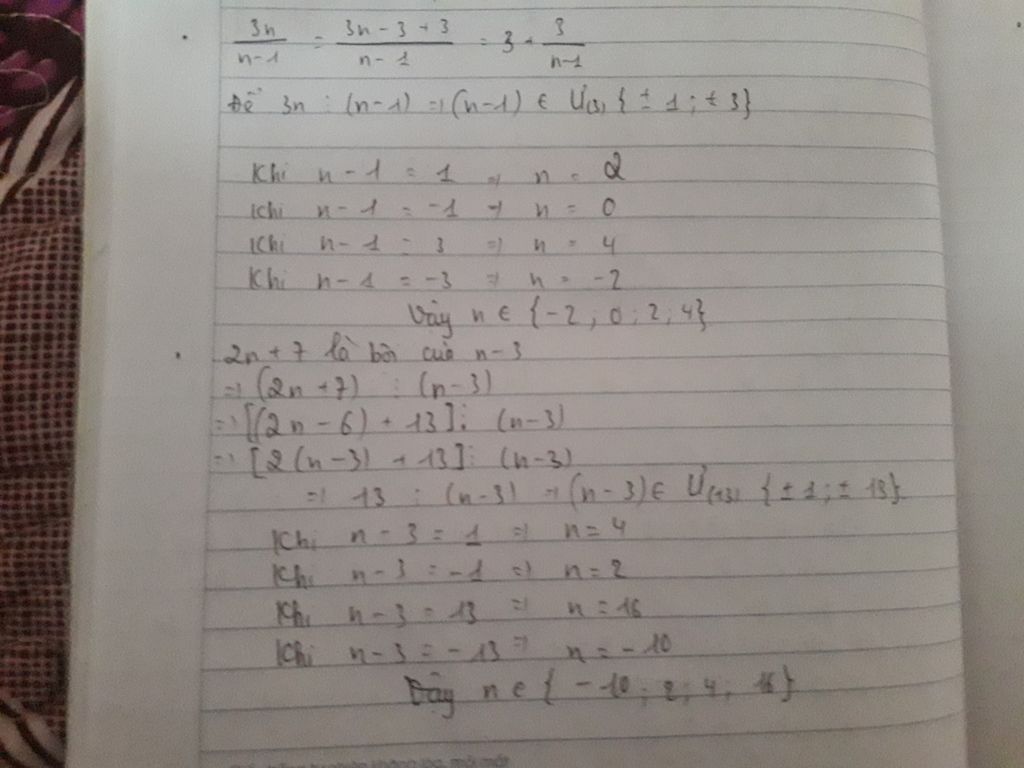 3n/n-1 = 3n-3+3/n-1 = 3 + 3/n-1
Để 3n ⋮ (n-1) => (n-1) ∈ Ư(3) {±1; ±3}
Khi n-1 = 1 => n = 2
Khi n-1 = -1 => n = 0
Khi n-1 = 3 => n = 4
Khi n-1 = -3 => n = -2
Vậy n ∈ {-2; 0; 2; 4}
2n+7 là bội của n-3
=> (2n+7) ⋮ (n-3)
=> [(2n-6) + 13] ⋮ (n-3)
=> [2(n-3) + 13] ⋮ (n-3)
=> 13 ⋮ (n-3) => (n-3) ∈ Ư(13) {±1; ±13}
Khi n-3 = 1 => n = 4
Khi n-3 = -1 => n = 2
Khi n-3 = 13 => n = 16
Khi n-3 = -13 => n = -10
Vậy n ∈ {-10; 2; 4; 16}